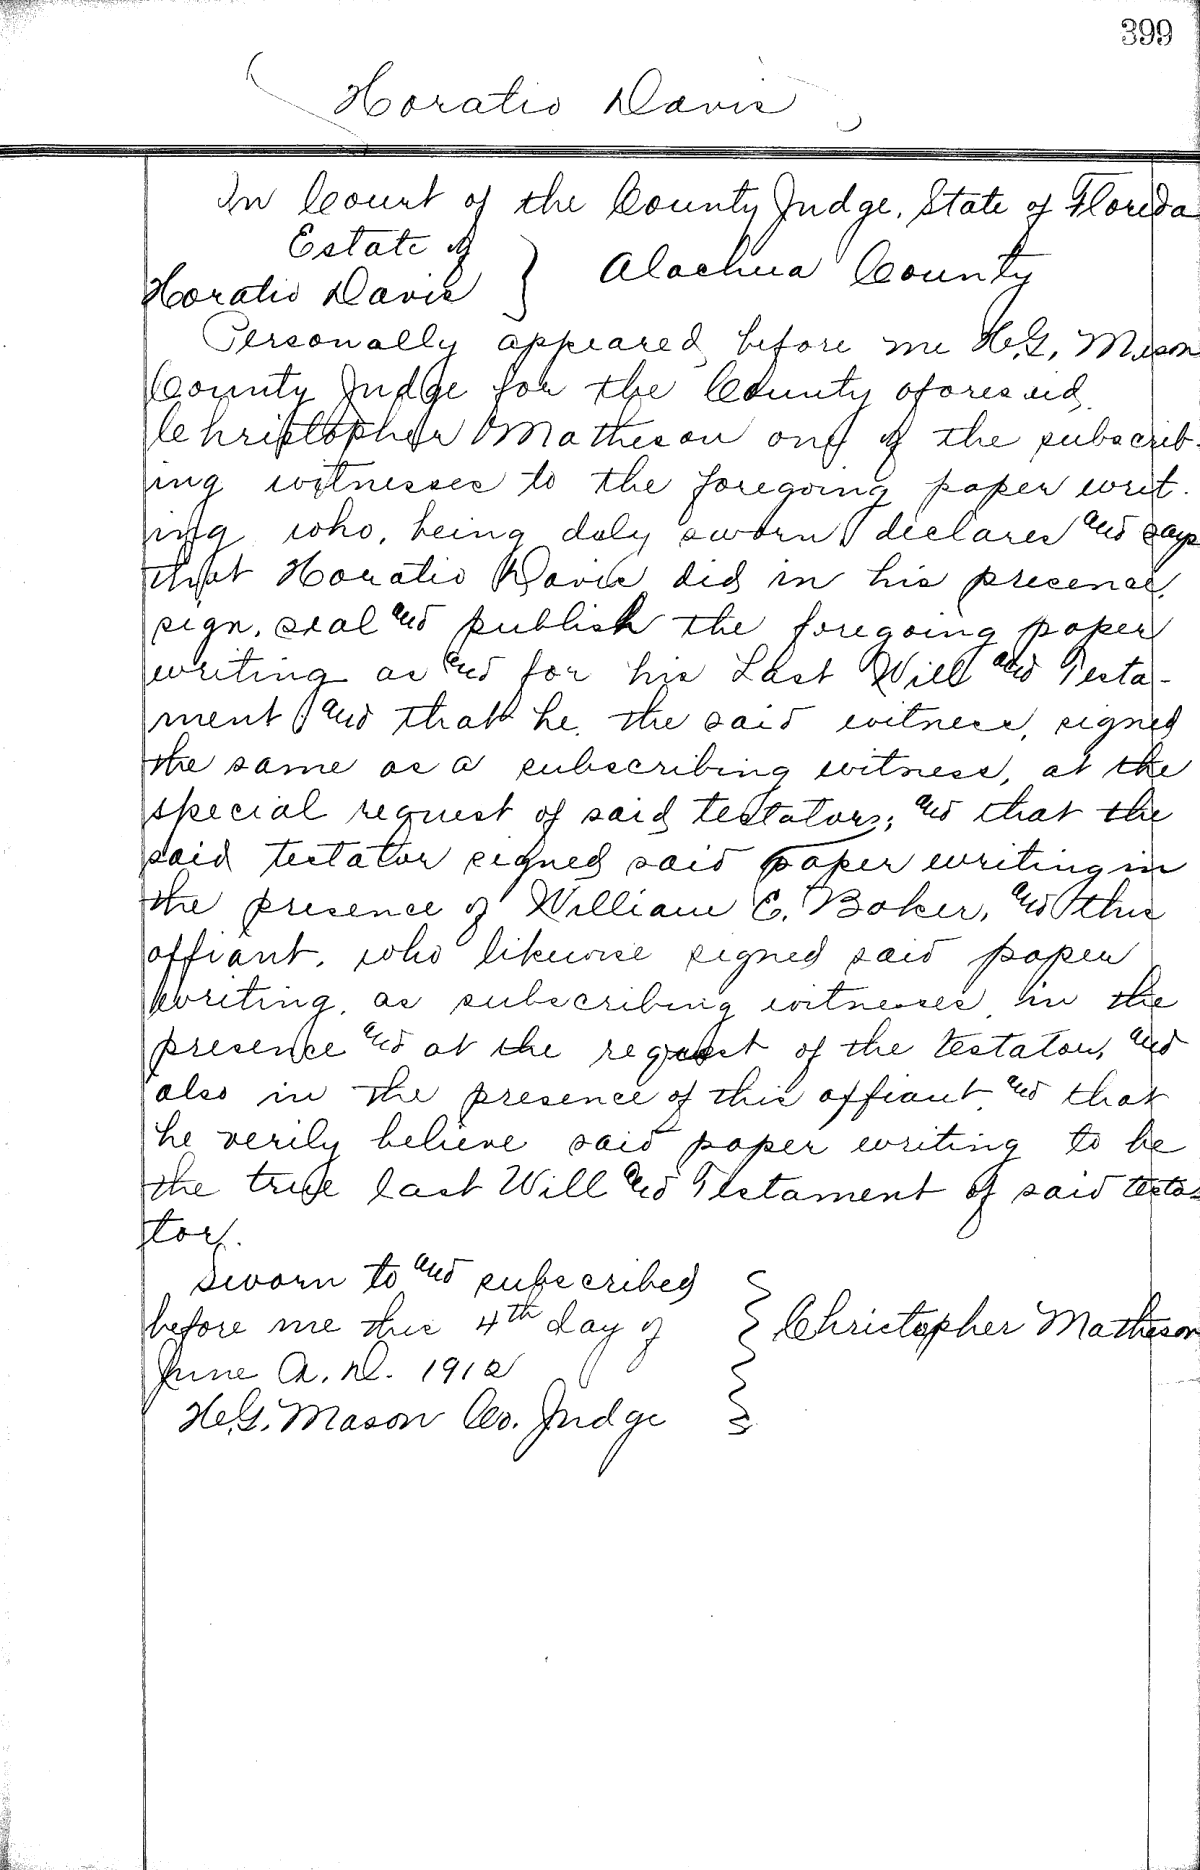 399
Horatio Davis
In Court of the County Judge, State of Florida
Estate of
Horatio Davis } Alachua County
Personally appeared before me H.G. Mason
County Judge for the County aforesaid,
Christopher Matheson one of the subscrib-
ing witnesses to the foregoing paper writ-
ing who, being duly sworn, declares and says
that Horatio Davis did in his presence,
sign, seal and publish the foregoing paper
writing as and for his Last Will and Testa-
ment and that he, the said witness, signed
the same as a subscribing witness, at the
special request of said testator; and that the
said testator signed said paper writing in
the presence of William E. Baker, and this
affiant, who likewise signed said paper
writing, as subscribing witnesses, in the
presence and at the request of the testator, and
also in the presence of this affiant and that
he verily believe said paper writing to be
the true last Will and Testament of said testa-
tor.
Sworn to and subscribed
before me this 4th day of } Christopher Matheson
June A.D. 1912
H.G. Mason Co. Judge